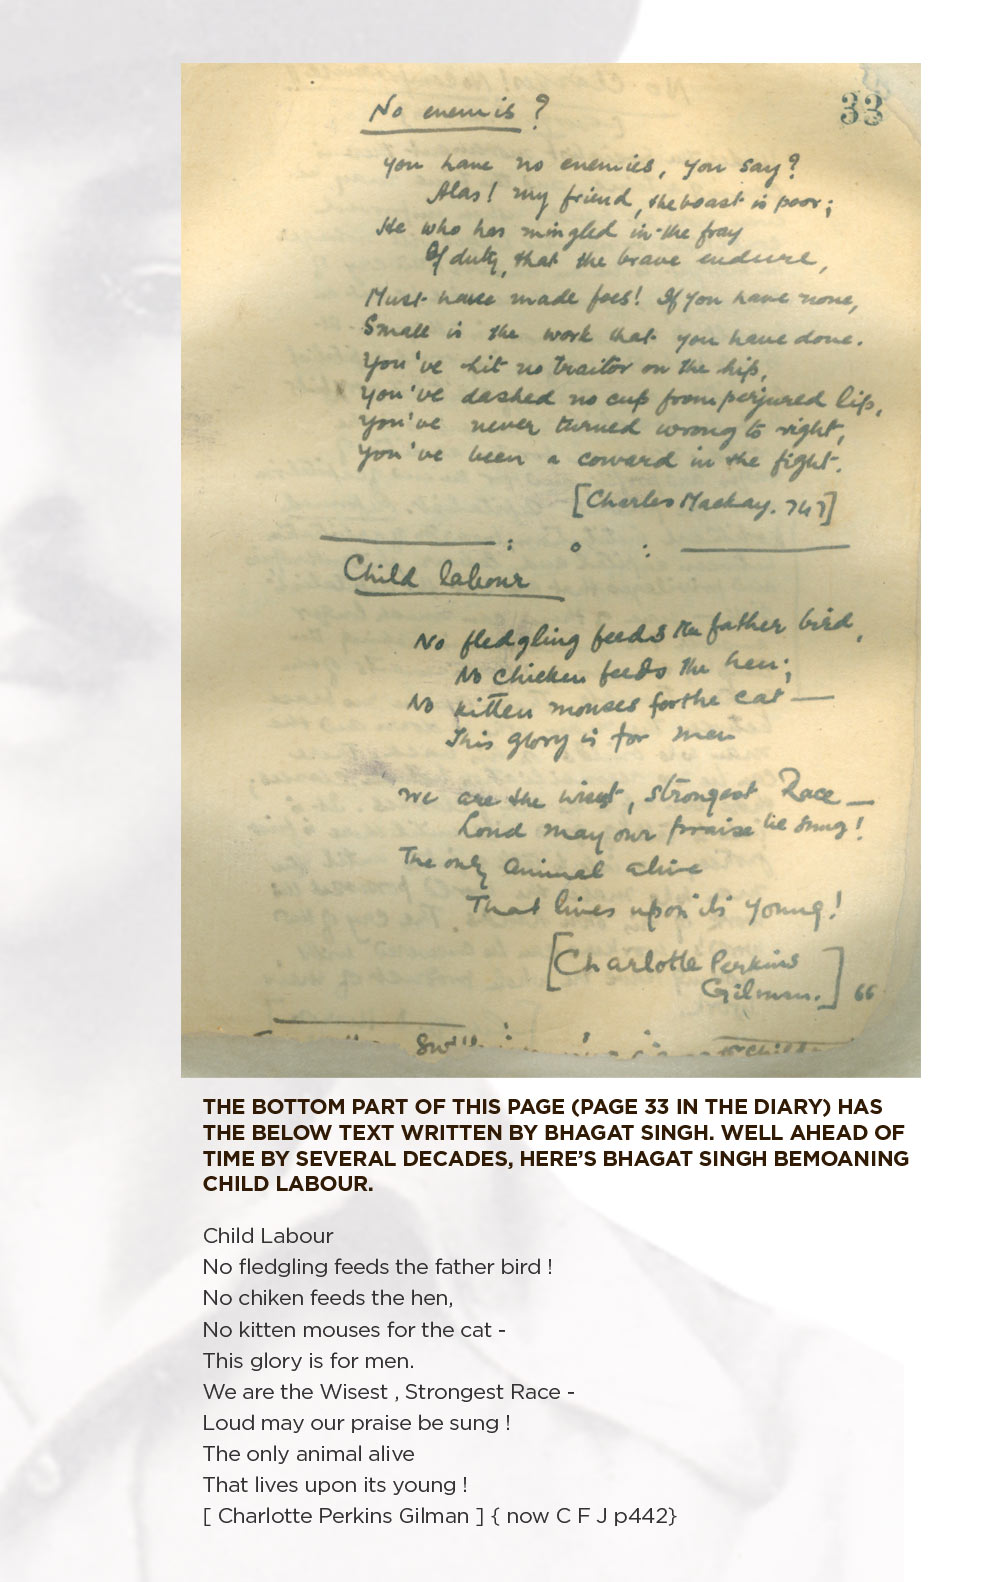 33
No enemis?
You have no enemies, you say?
Alas! my friend, the boast is poor;
He who has mingled in the fray
Of duty, that the brave endure,
Must have made foes! If you have none,
Small is the work that you have done.
You've hit no traitor on the hip,
You've dashed no cup from perjured lip,
You've never turned wrong to right,
You've been a coward in the fight.
[Charles Mackay. 747]
: o :
Child labour
No fledgling feeds the father bird,
No chicken feeds the hen;
No kitten mouses for the cat —
This glory is for men
We are the wisest, strongest Race —
Loud may our praise be sung!
The only animal alive
That lives upon its young!
[Charlotte Perkins
Gilman.] 66
THE BOTTOM PART OF THIS PAGE (PAGE 33 IN THE DIARY) HAS
THE BELOW TEXT WRITTEN BY BHAGAT SINGH. WELL AHEAD OF
TIME BY SEVERAL DECADES, HERE'S BHAGAT SINGH BEMOANING
CHILD LABOUR.
Child Labour
No fledgling feeds the father bird !
No chiken feeds the hen,
No kitten mouses for the cat -
This glory is for men.
We are the Wisest , Strongest Race -
Loud may our praise be sung !
The only animal alive
That lives upon its young !
[ Charlotte Perkins Gilman ] { now C F J p442}